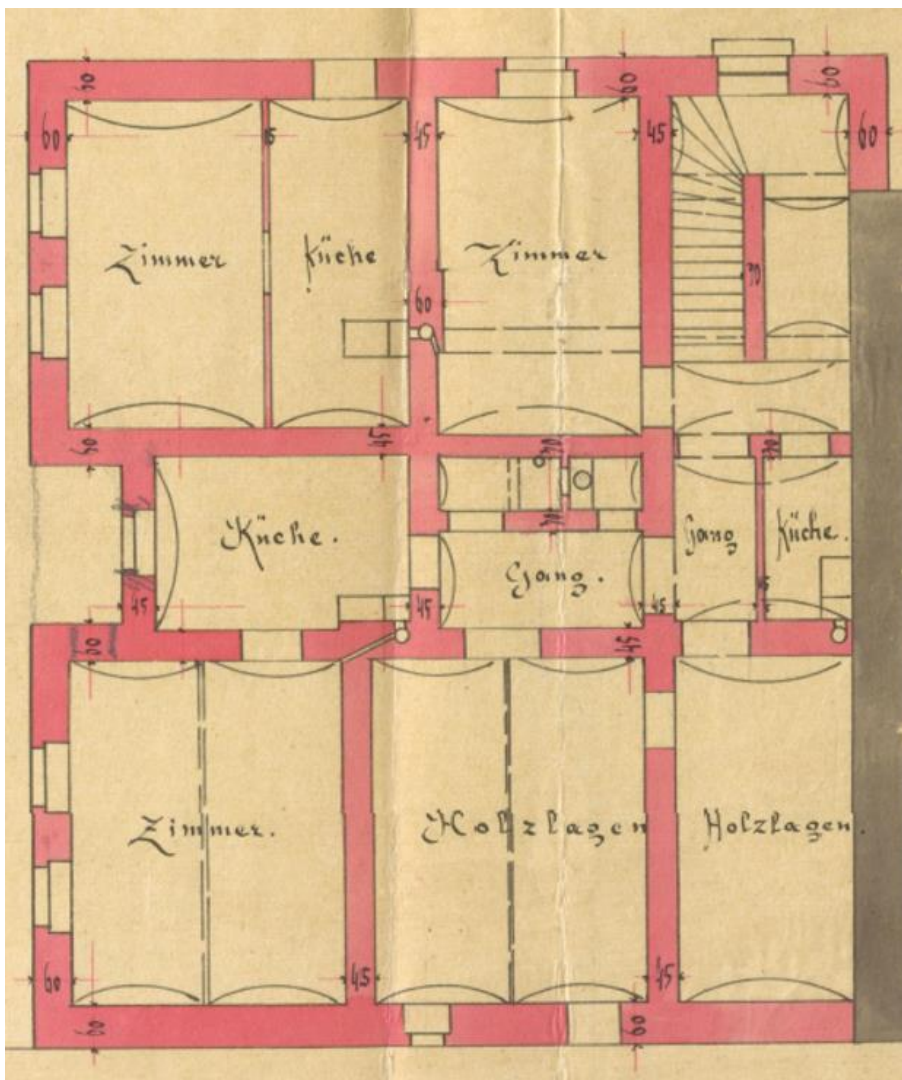 60 60 60
60 15 45 45 60
Zimmer Küche Zimmer
30
60
60 45
Küche. Gang. Gang Küche.
45 45 15
60 45
Zimmer. Holzlagen Holzlagen.
60 45 45
60 60